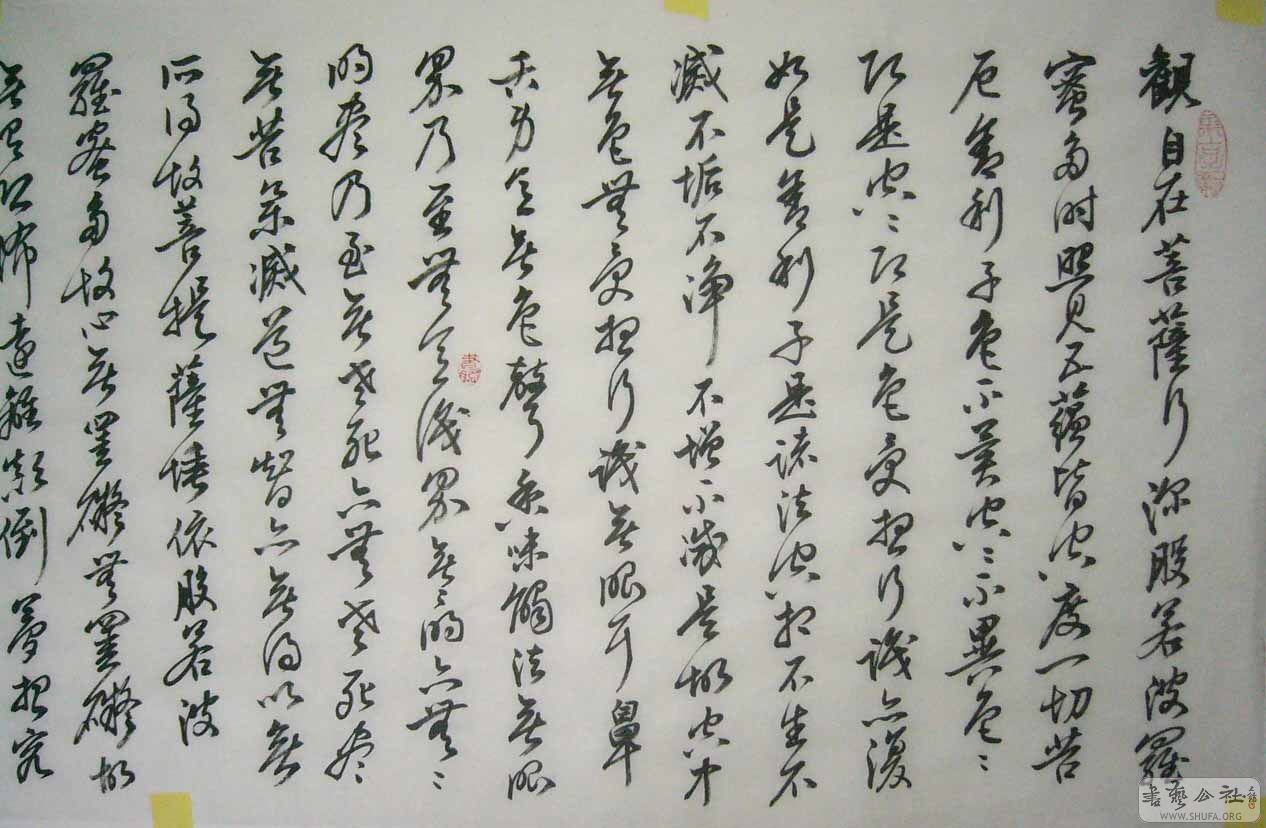 觀自在菩薩行深般若波羅
蜜多时照見五蘊皆空度一切苦
厄舍利子色不異空〻不異色〻
即是空〻即是色受想行識亦復
如是舍利子是諸法空相不生不
滅不垢不淨不增不減是故空中
無色無受想行識無眼耳鼻
舌身意無色聲香味觸法無眼
界乃至無意識界無〻明亦無〻
明尽乃至無老死亦無老死尽
無苦集滅道無智亦無得以無
所得故菩提薩埵依般若波
羅蜜多故心無罣礙無罣礙故
無有恐怖遠離顛倒夢想究
書藝公社
WWW.SHUFA.ORG